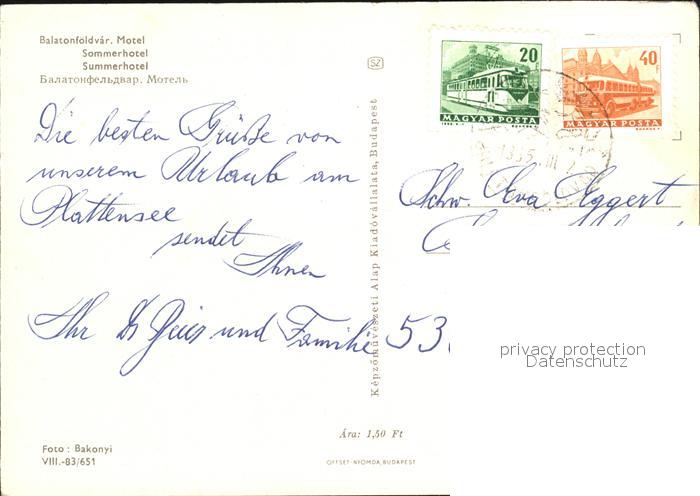 Balatonföldvár. Motel
Sommerhotel
Summerhotel
Балатонфельдвар. Мотель
SZ
20
MAGYAR POSTA
40 F
MAGYAR POSTA
Die besten Grüße von
unserem Urlaub am
Plattensee
sendet
Ihnen
Ihr und Familie
Schw. Eva Eggert
53
privacy protection
Datenschutz
Képzőművészeti Alap Kiadóvállalata, Budapest
Ára: 1,50 Ft
Foto : Bakonyi
VIII.-83/651
OFFSET-NYOMDA, BUDAPEST